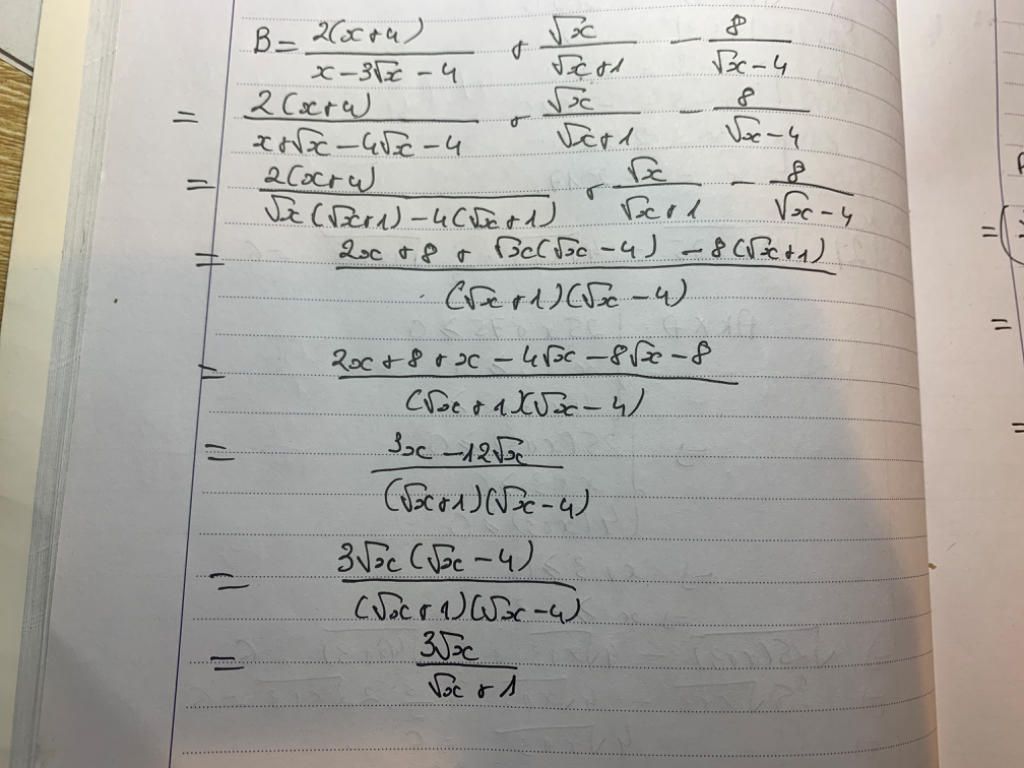 B = 2(x+4)/(x-3√x-4) + √x/(√x+1) - 8/(√x-4)
= 2(x+4)/(x+√x-4√x-4) + √x/(√x+1) - 8/(√x-4)
= 2(x+4)/(√x(√x+1)-4(√x+1)) + √x/(√x+1) - 8/(√x-4)
= (2x+8+√x(√x-4)-8(√x+1))/((√x+1)(√x-4))
= (2x+8+x-4√x-8√x-8)/((√x+1)(√x-4))
= (3x-12√x)/((√x+1)(√x-4))
= 3√x(√x-4)/((√x+1)(√x-4))
= 3√x/(√x+1)